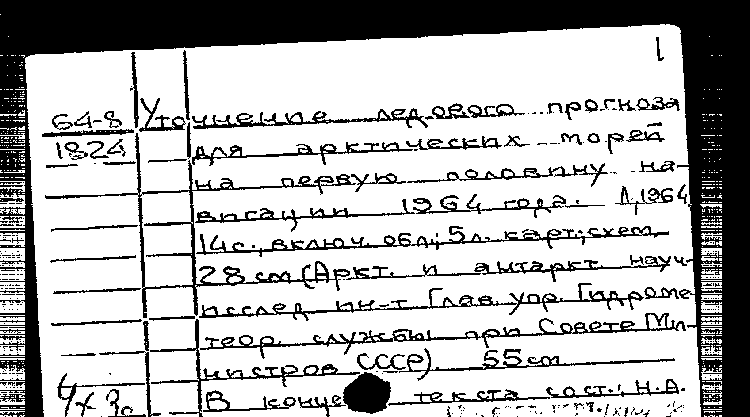 1
64-8 Уточнение ледового прогноза
1824 для арктических морей
на первую половину на-
вигации 1964 года. Л, 1964
14 с., включ. обл.; 5 л. карт; схем,
28 см (Аркт. и антаркт. науч-
исслед. ин-т Глав. упр. Гидроме-
теор. службы при Совете Ми-
нистров СССР). 55 см
В конце текста сост.: Н.А.